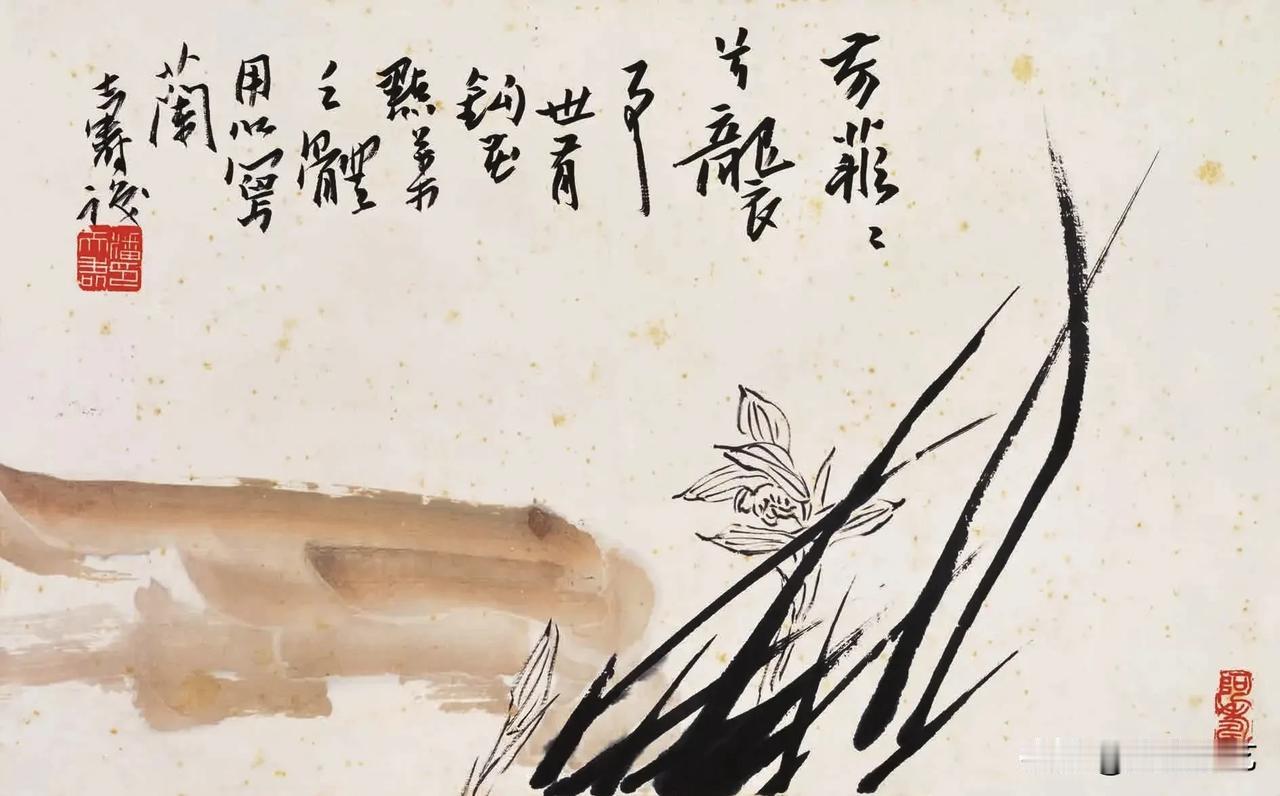 芳菲〻
兮襲
予
世有
鈎花
點葉
之體
用以寫
蘭
壽
潘天壽印
阿壽